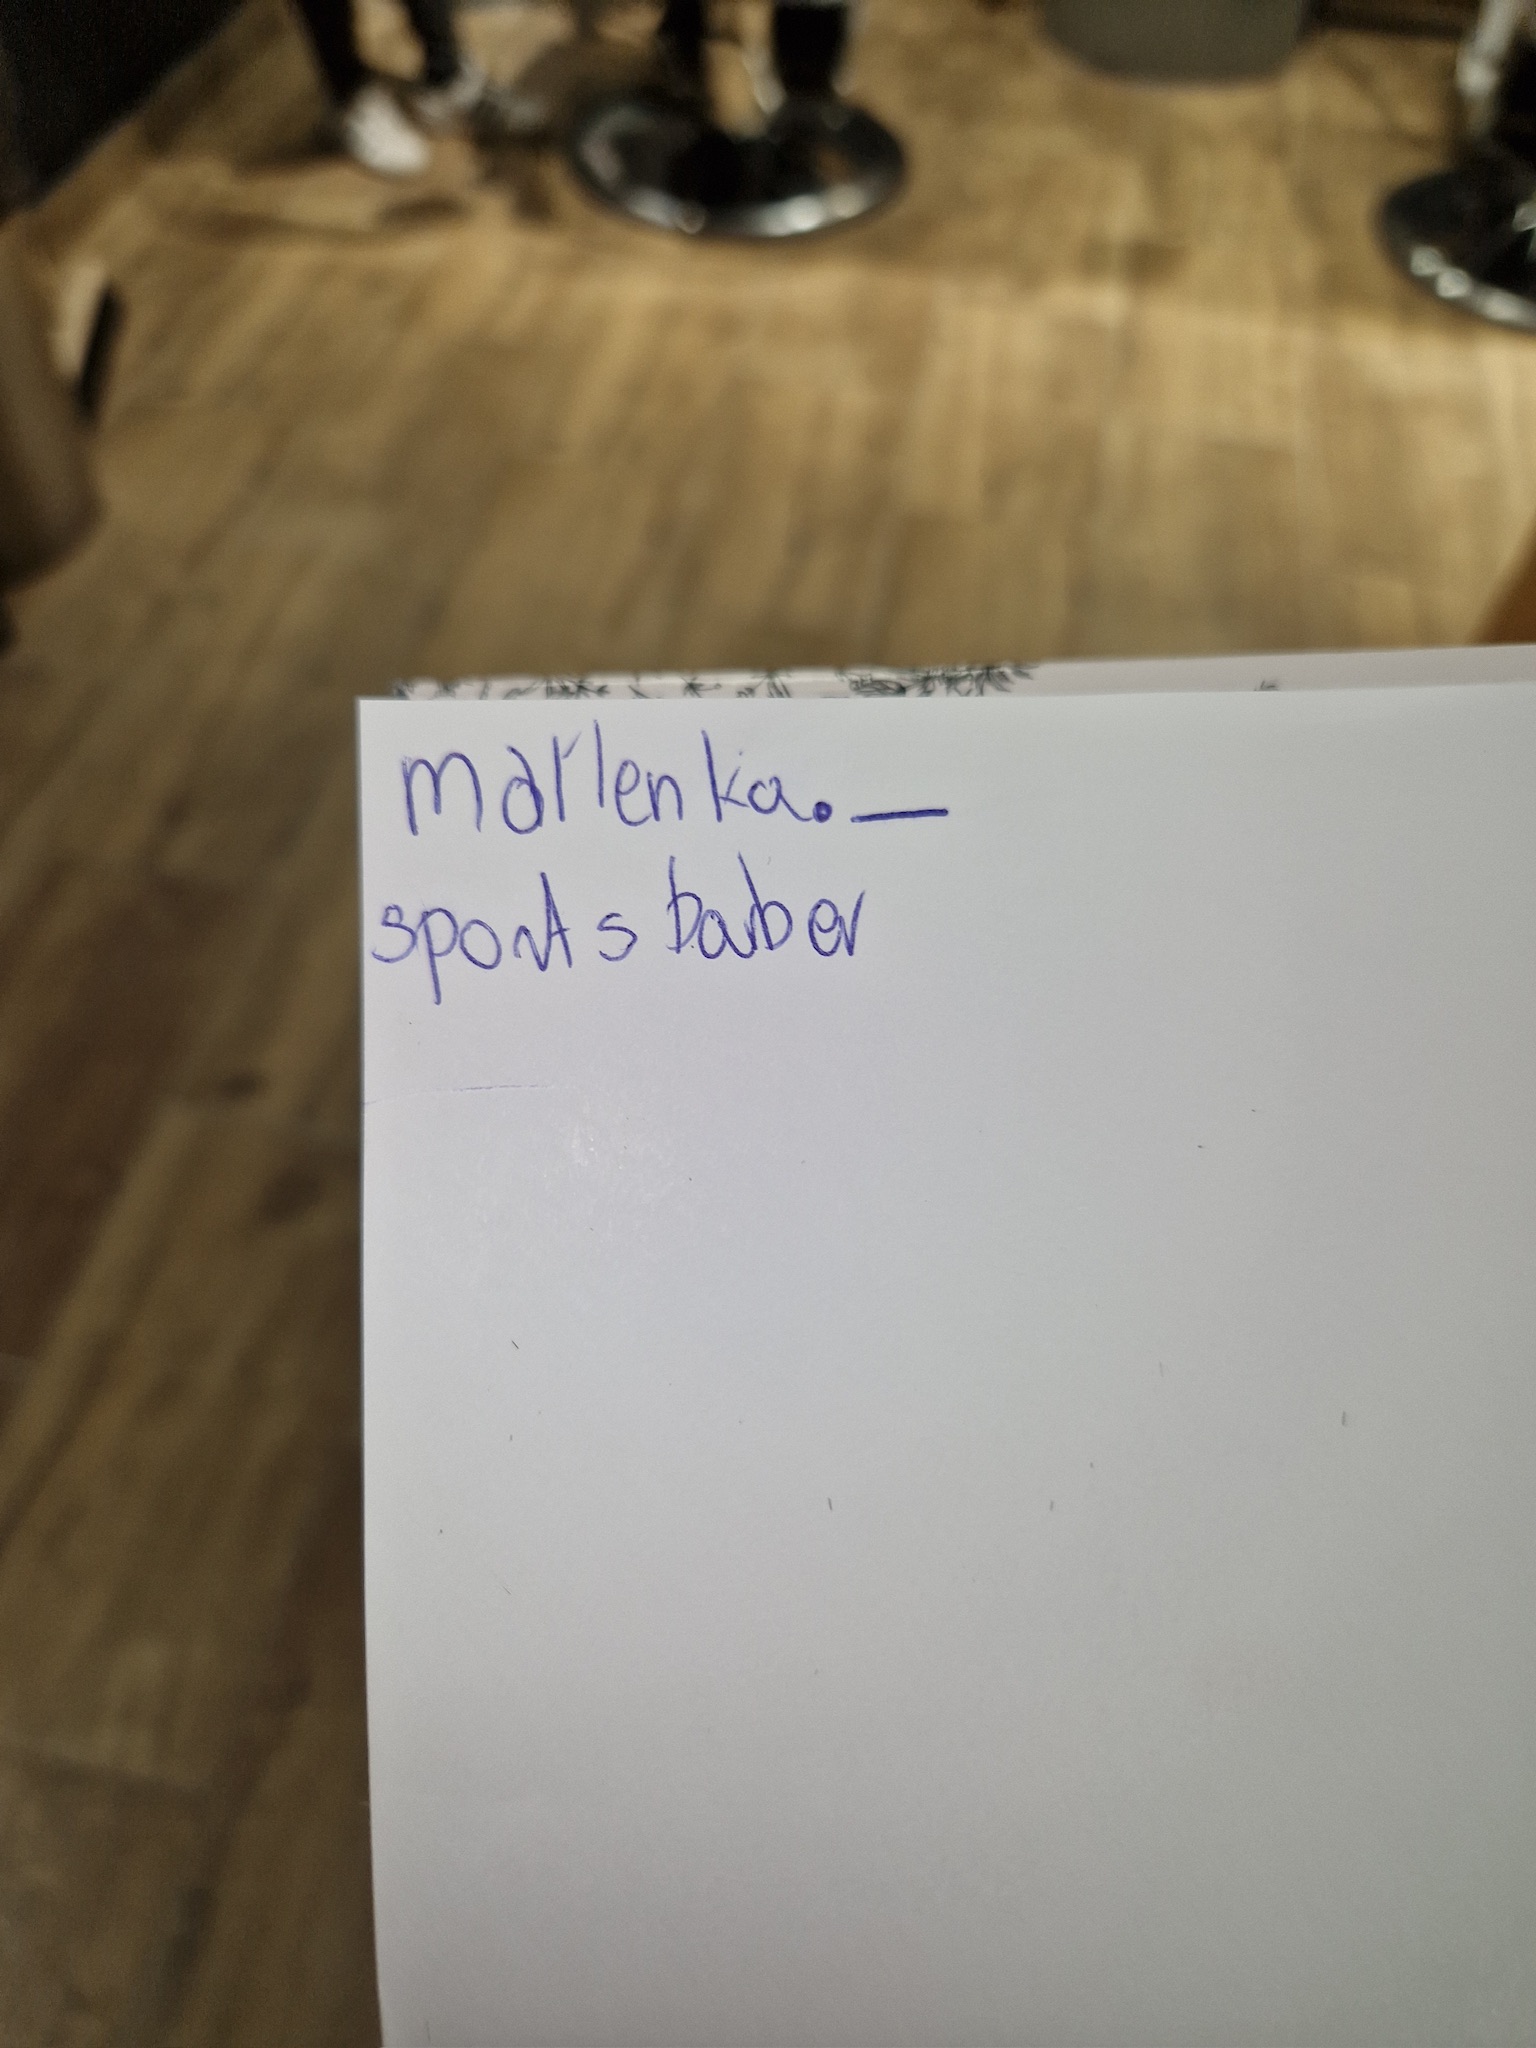 marlenka._
sports barber